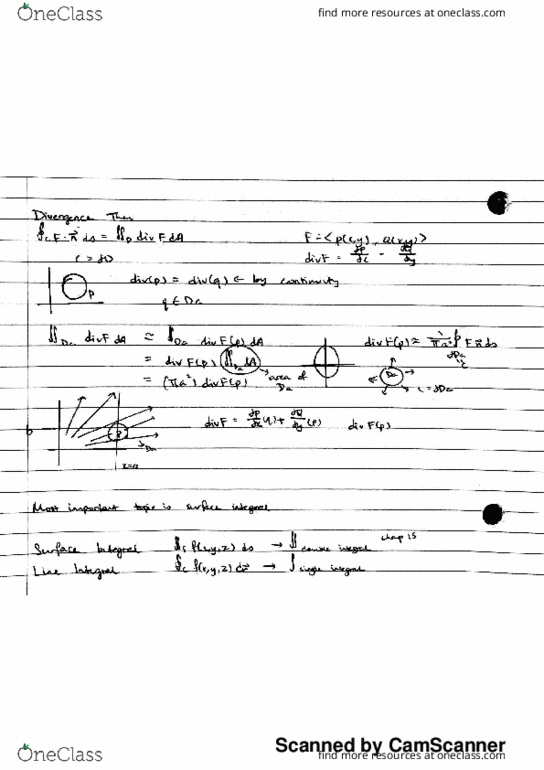 OneClass find more resources at oneclass.com
Divergence Thm
∮c F·n ds = ∬D div F dA F = <P(x,y), Q(x,y)>
c = ∂D div F = ∂P/∂x - ∂Q/∂y
div(p) = div(q) ← by continuity
P
q ∈ Da
∬Da div F dA ≈ ∬Da div F(p) dA div F(p) ≈ 1/πa² ∮∂Da F·n ds
= div F(p) ∬Da dA
→ area of Da
= (πa²) div F(p)
Da c = ∂Da
div F = ∂P/∂x (p) + ∂Q/∂y (p) div F(p)
b P
Da
x=a
Most important topic is surface integral
chap 15
Surface Integral f(x,y,z) ds → ∬ integral
Line Integral ∫c f(x,y,z) → ∫ single integral
Scanned by CamScanner
OneClass find more resources at oneclass.com